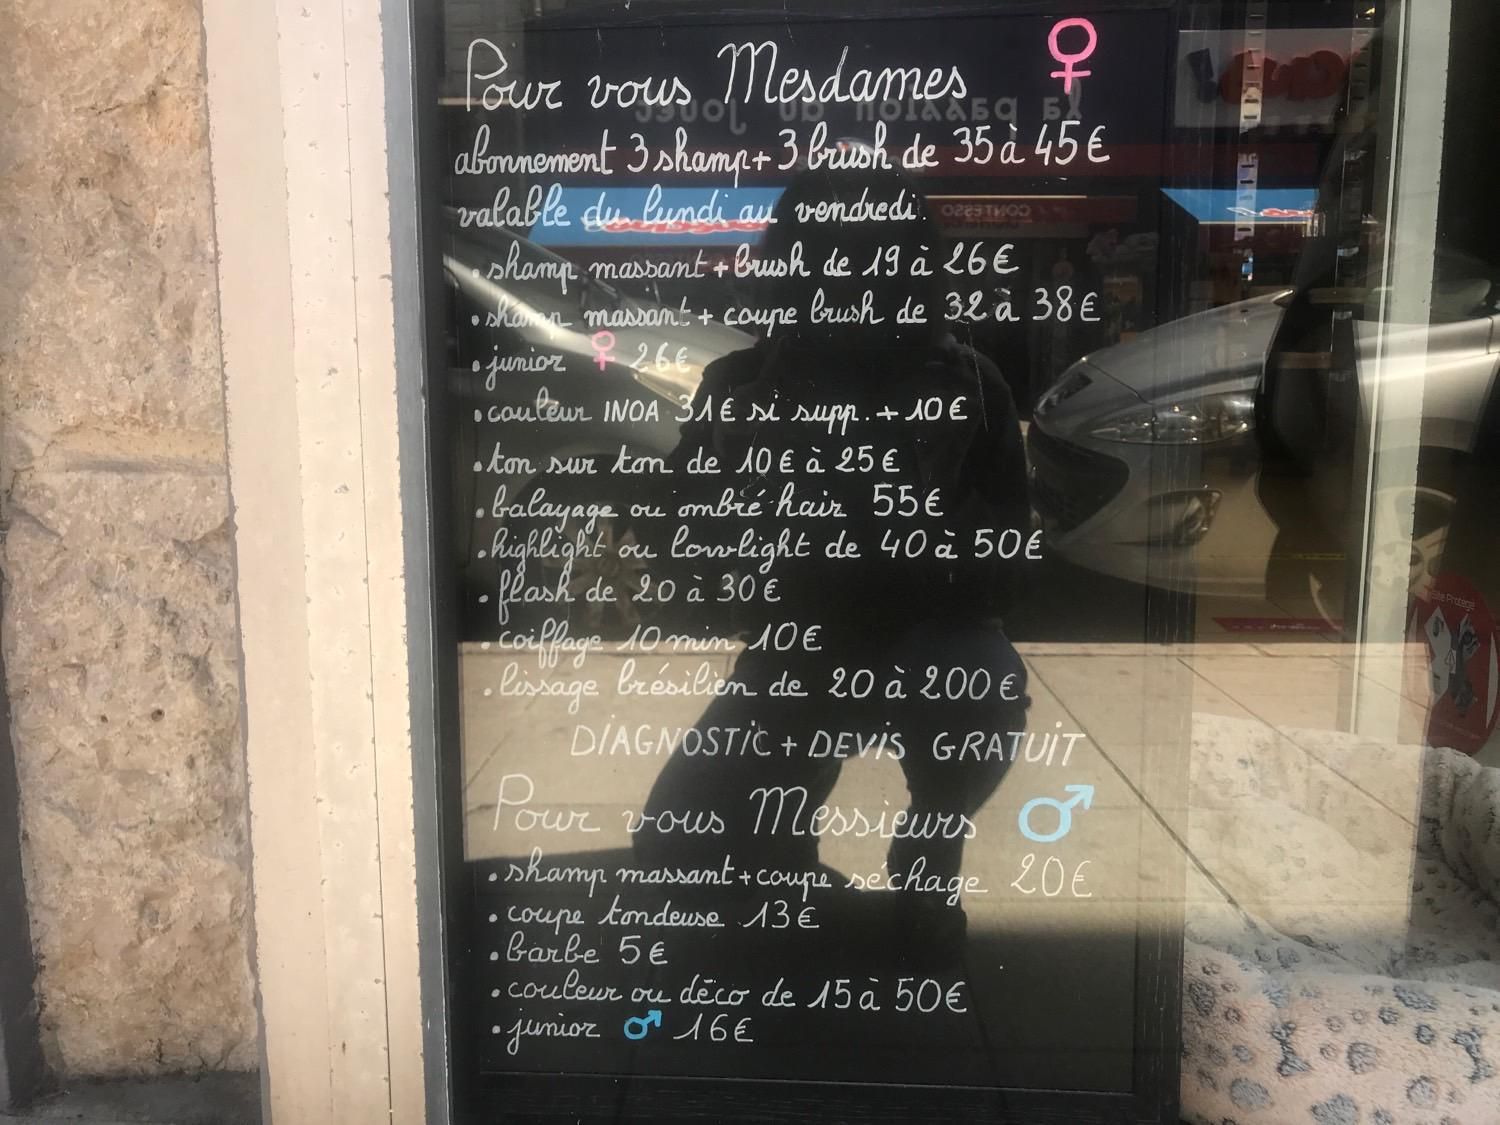 Pour vous Mesdames ♀
abonnement 3 shamp + 3 brush de 35 à 45€
valable du lundi au vendredi.
. shamp massant + brush de 19 à 26€
. shamp massant + coupe brush de 32 à 38€
. junior ♀ 26€
. couleur INOA 31€ si supp. + 10€
. ton sur ton de 10€ à 25€
. balayage ou ombré hair 55€
. highlight ou lowlight de 40 à 50€
. flash de 20 à 30€
. coiffage 10 min 10€
. lissage brésilien de 20 à 200€
DIAGNOSTIC + DEVIS GRATUIT
Pour vous Messieurs ♂
. shamp massant + coupe séchage 20€
. coupe tondeuse 13€
. barbe 5€
. couleur ou déco de 15 à 50€
. junior ♂ 16€
la passion du jouet
CONTESSO
Site Protégé